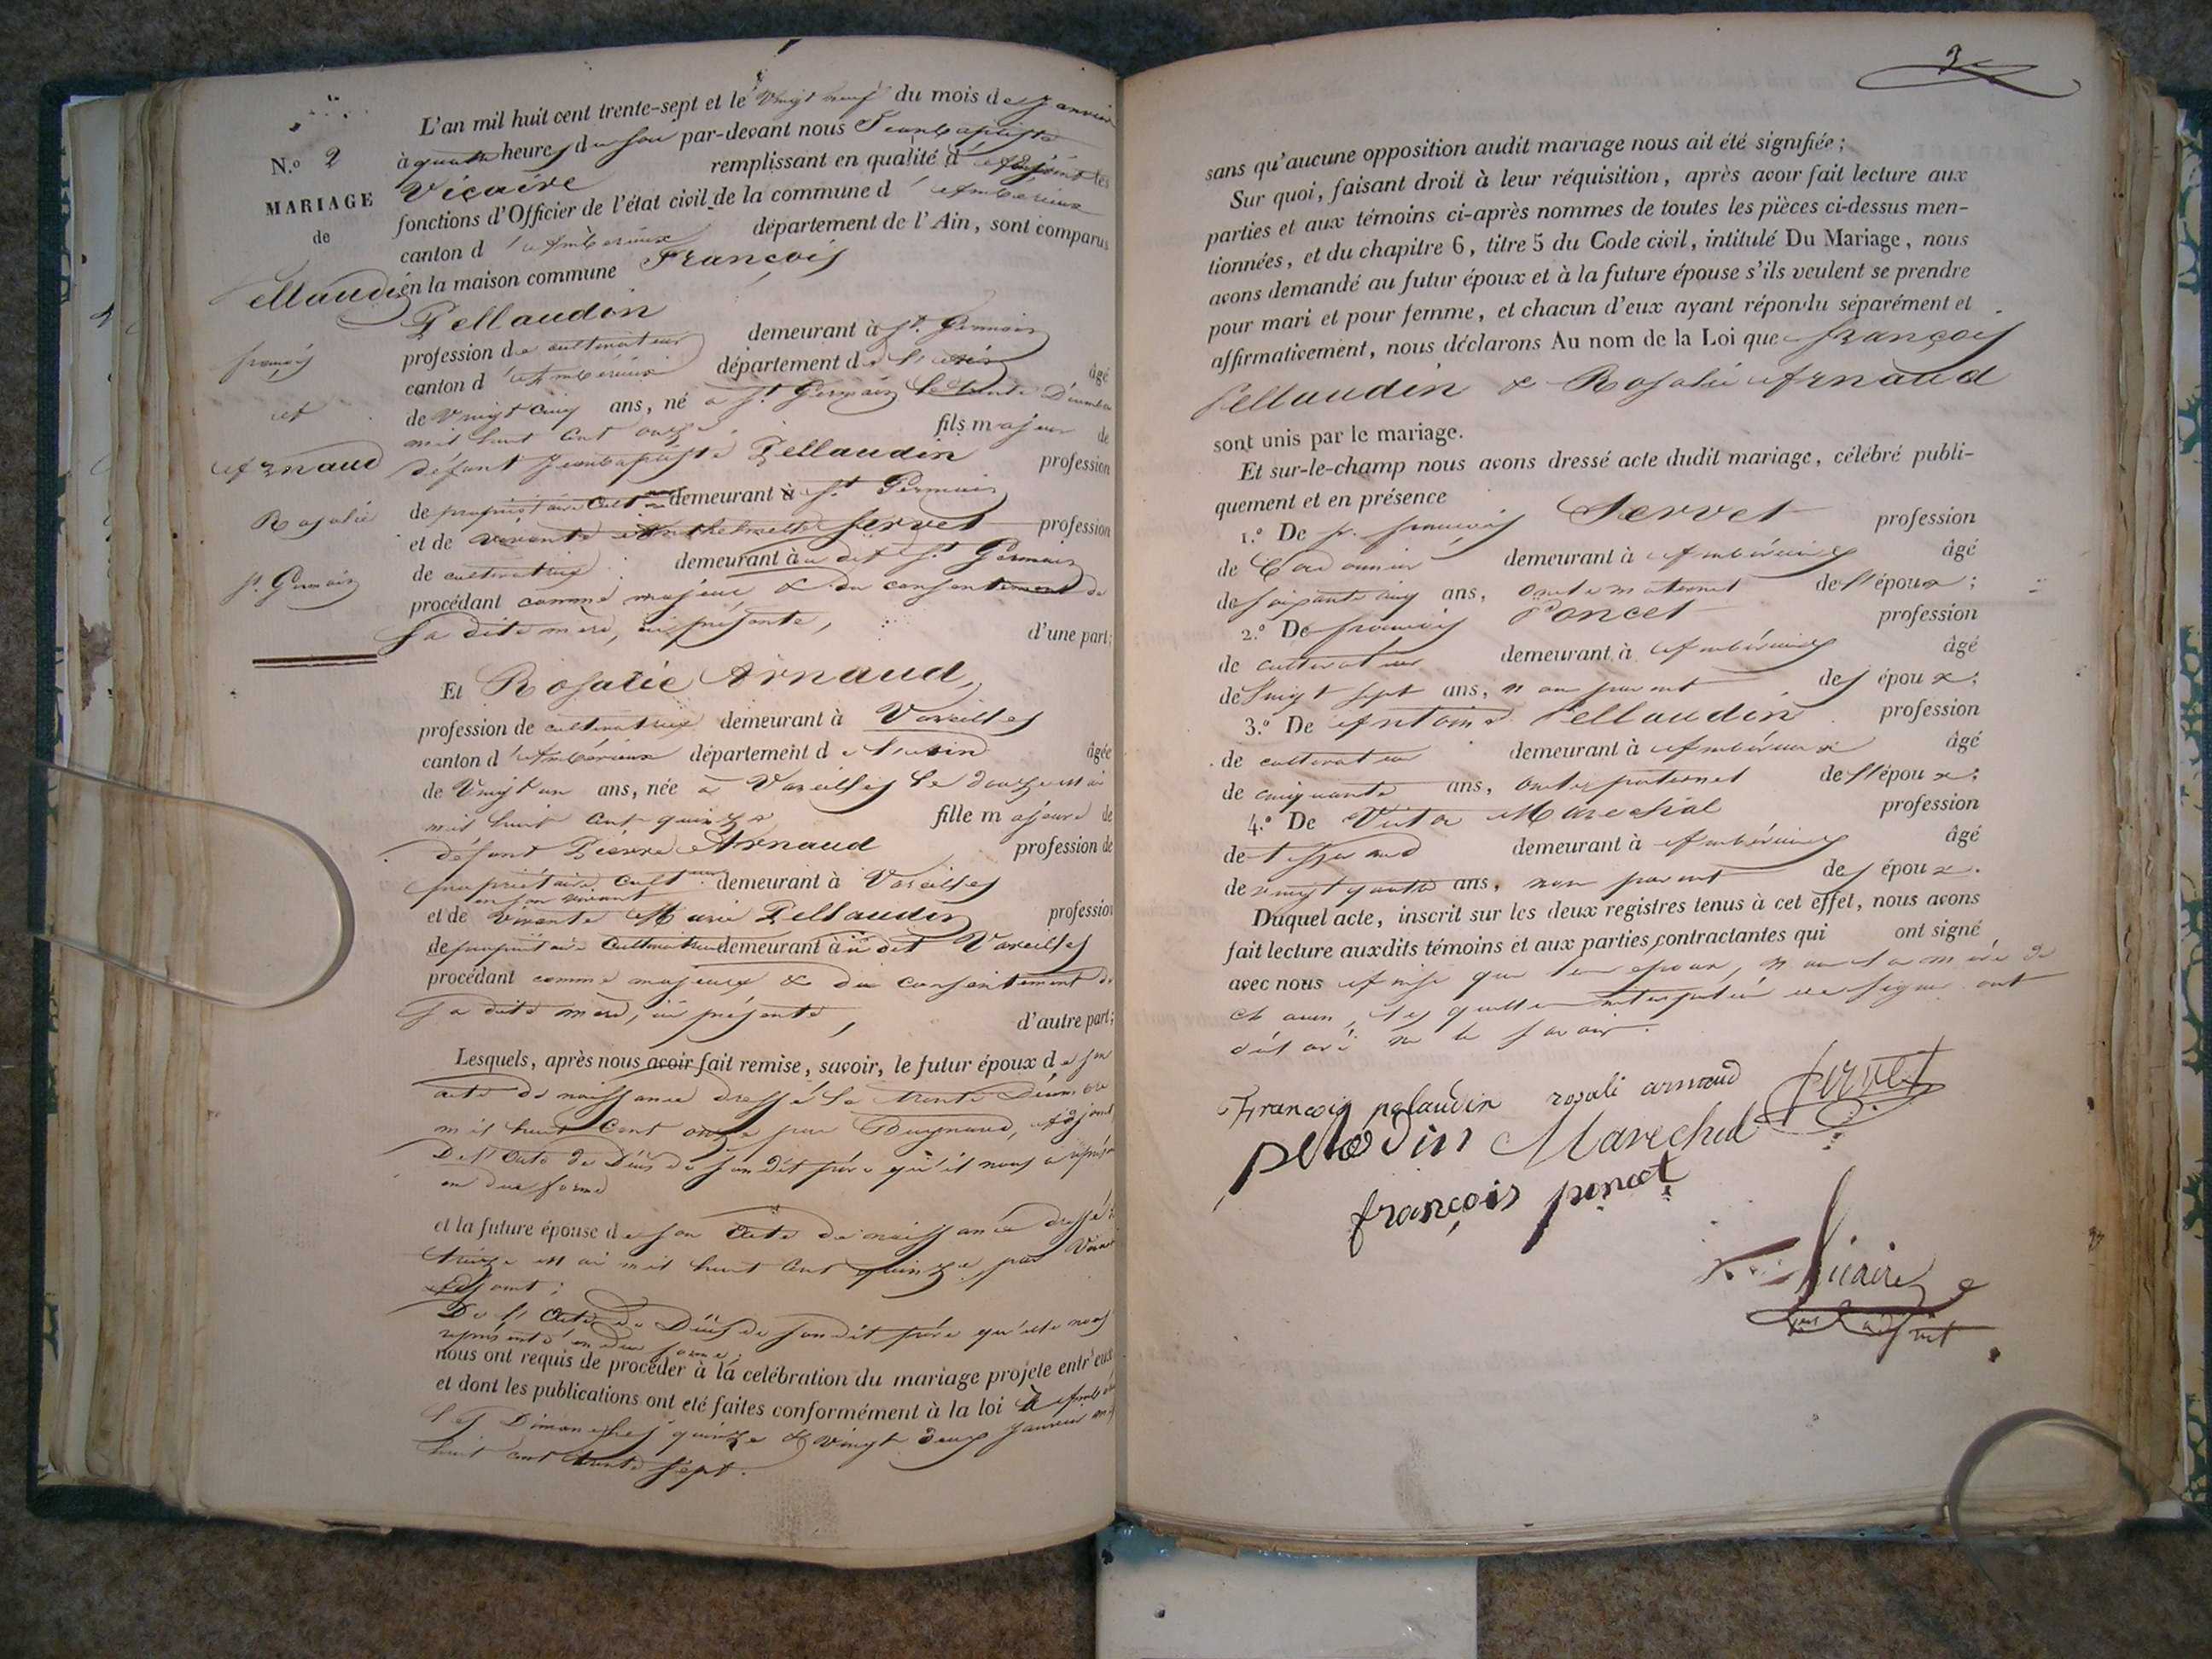 N.o 2
MARIAGE
de
ellaudin
françois
et
Arnaud
Rosalie
St. Germain
L'an mil huit cent trente-sept et le Vingt neuf du mois de Janvier
à quatre heures du soir par-devant nous Jean Baptiste
Vicaire remplissant en qualité d'Adjoint les
fonctions d'Officier de l'état civil de la commune d'Ambérieux
canton d'Ambérieux département de l'Ain, sont comparus
en la maison commune François
Pellaudin
profession de cultivateur demeurant à St. Germain
canton d'Ambérieux département de l'Ain âgé
de Vingt cinq ans, né à St Germain le trente Décembre
mil huit cent onze fils majeur de
défunt Jean Baptiste Pellaudin profession
de propriétaire Cult.eur demeurant à St Germain
et de vivante Anthelmette Servet profession
de cultivatrice demeurant à u dit St Germain
procédant comme majeur & du consentement de
sa dite mère, ici présente, d'une part;
Et Rosalie Arnaud,
profession de cultivatrice demeurant à Vareilles
canton d'Ambérieux département de l'Ain âgée
de Vingt un ans, née à Vareilles le douze mai
mil huit cent quinze fille majeure de
défunt Pierre Arnaud profession de
propriétaire Cult.eur demeurant à Vareilles
en son vivant
et de vivante Marie Pellaudin profession
de propriétaire Cultivatrice demeurant à u dit Vareilles
procédant comme majeure & du consentement de
sa dite mère, ici présente, d'autre part;
Lesquels, après nous avoir fait remise, savoir, le futur époux de son
acte de naissance dressé le trente Décembre
mil huit cent onze par Adjoint
De l'Acte de Décès de son dit père qu'il nous a
en due forme
et la future épouse de son Acte de naissance dressé le
treize mai mil huit cent quinze, par
Adjoint;
De l'Acte de Décès de son dit père qu'elle nous
représente en due forme;
nous ont requis de procéder à la celébration du mariage projete entr'eux
et dont les publications ont eté faites conformément à la loi à
les Dimanches quinze & vingt deux Janvier mil
huit cent trente sept.
3
sans qu'aucune opposition audit mariage nous ait été signifiée;
Sur quoi, faisant droit à leur réquisition, après avoir fait lecture aux
parties et aux témoins ci-après nommes de toutes les pièces ci-dessus men-
tionnées, et du chapitre 6, titre 5 du Code civil, intitulé Du Mariage, nous
avons demandé au futur époux et à la future épouse s'ils veulent se prendre
pour mari et pour femme, et chacun d'eux ayant répondu séparément et
affirmativement, nous déclarons Au nom de la Loi que François
Pellaudin & Rosalie Arnaud
sont unis par le mariage.
Et sur-le-champ nous avons dressé acte dudit mariage, célébré publi-
quement et en présence
1.o De françois Servet profession
de Cordonnier demeurant à Ambérieux âgé
de soixante cinq ans, oncle maternel de l'époux;
2.o De françois Poncet profession
de cultivateur demeurant à Ambérieux âgé
de Vingt sept ans, non parent des époux;
3.o De Antoine Pellaudin profession
de cultivateur demeurant à Ambérieux âgé
de cinquante ans, oncle paternel de l'époux;
4.o De Victor Marechal profession
de tisserand demeurant à Ambérieux âgé
de vingt quatre ans, non parent des époux.
Duquel acte, inscrit sur les deux registres tenus à cet effet, nous avons
fait lecture auxdits témoins et aux parties contractantes qui ont signé
avec nous Ainsi que les époux, non la mère de
chacun, lesquelles interpelées de signer ont
déclaré ne le savoir.
François pelaudin rosali arnaud Servet
pelodin Marechal
françois poncet
Vicaire
adjoint